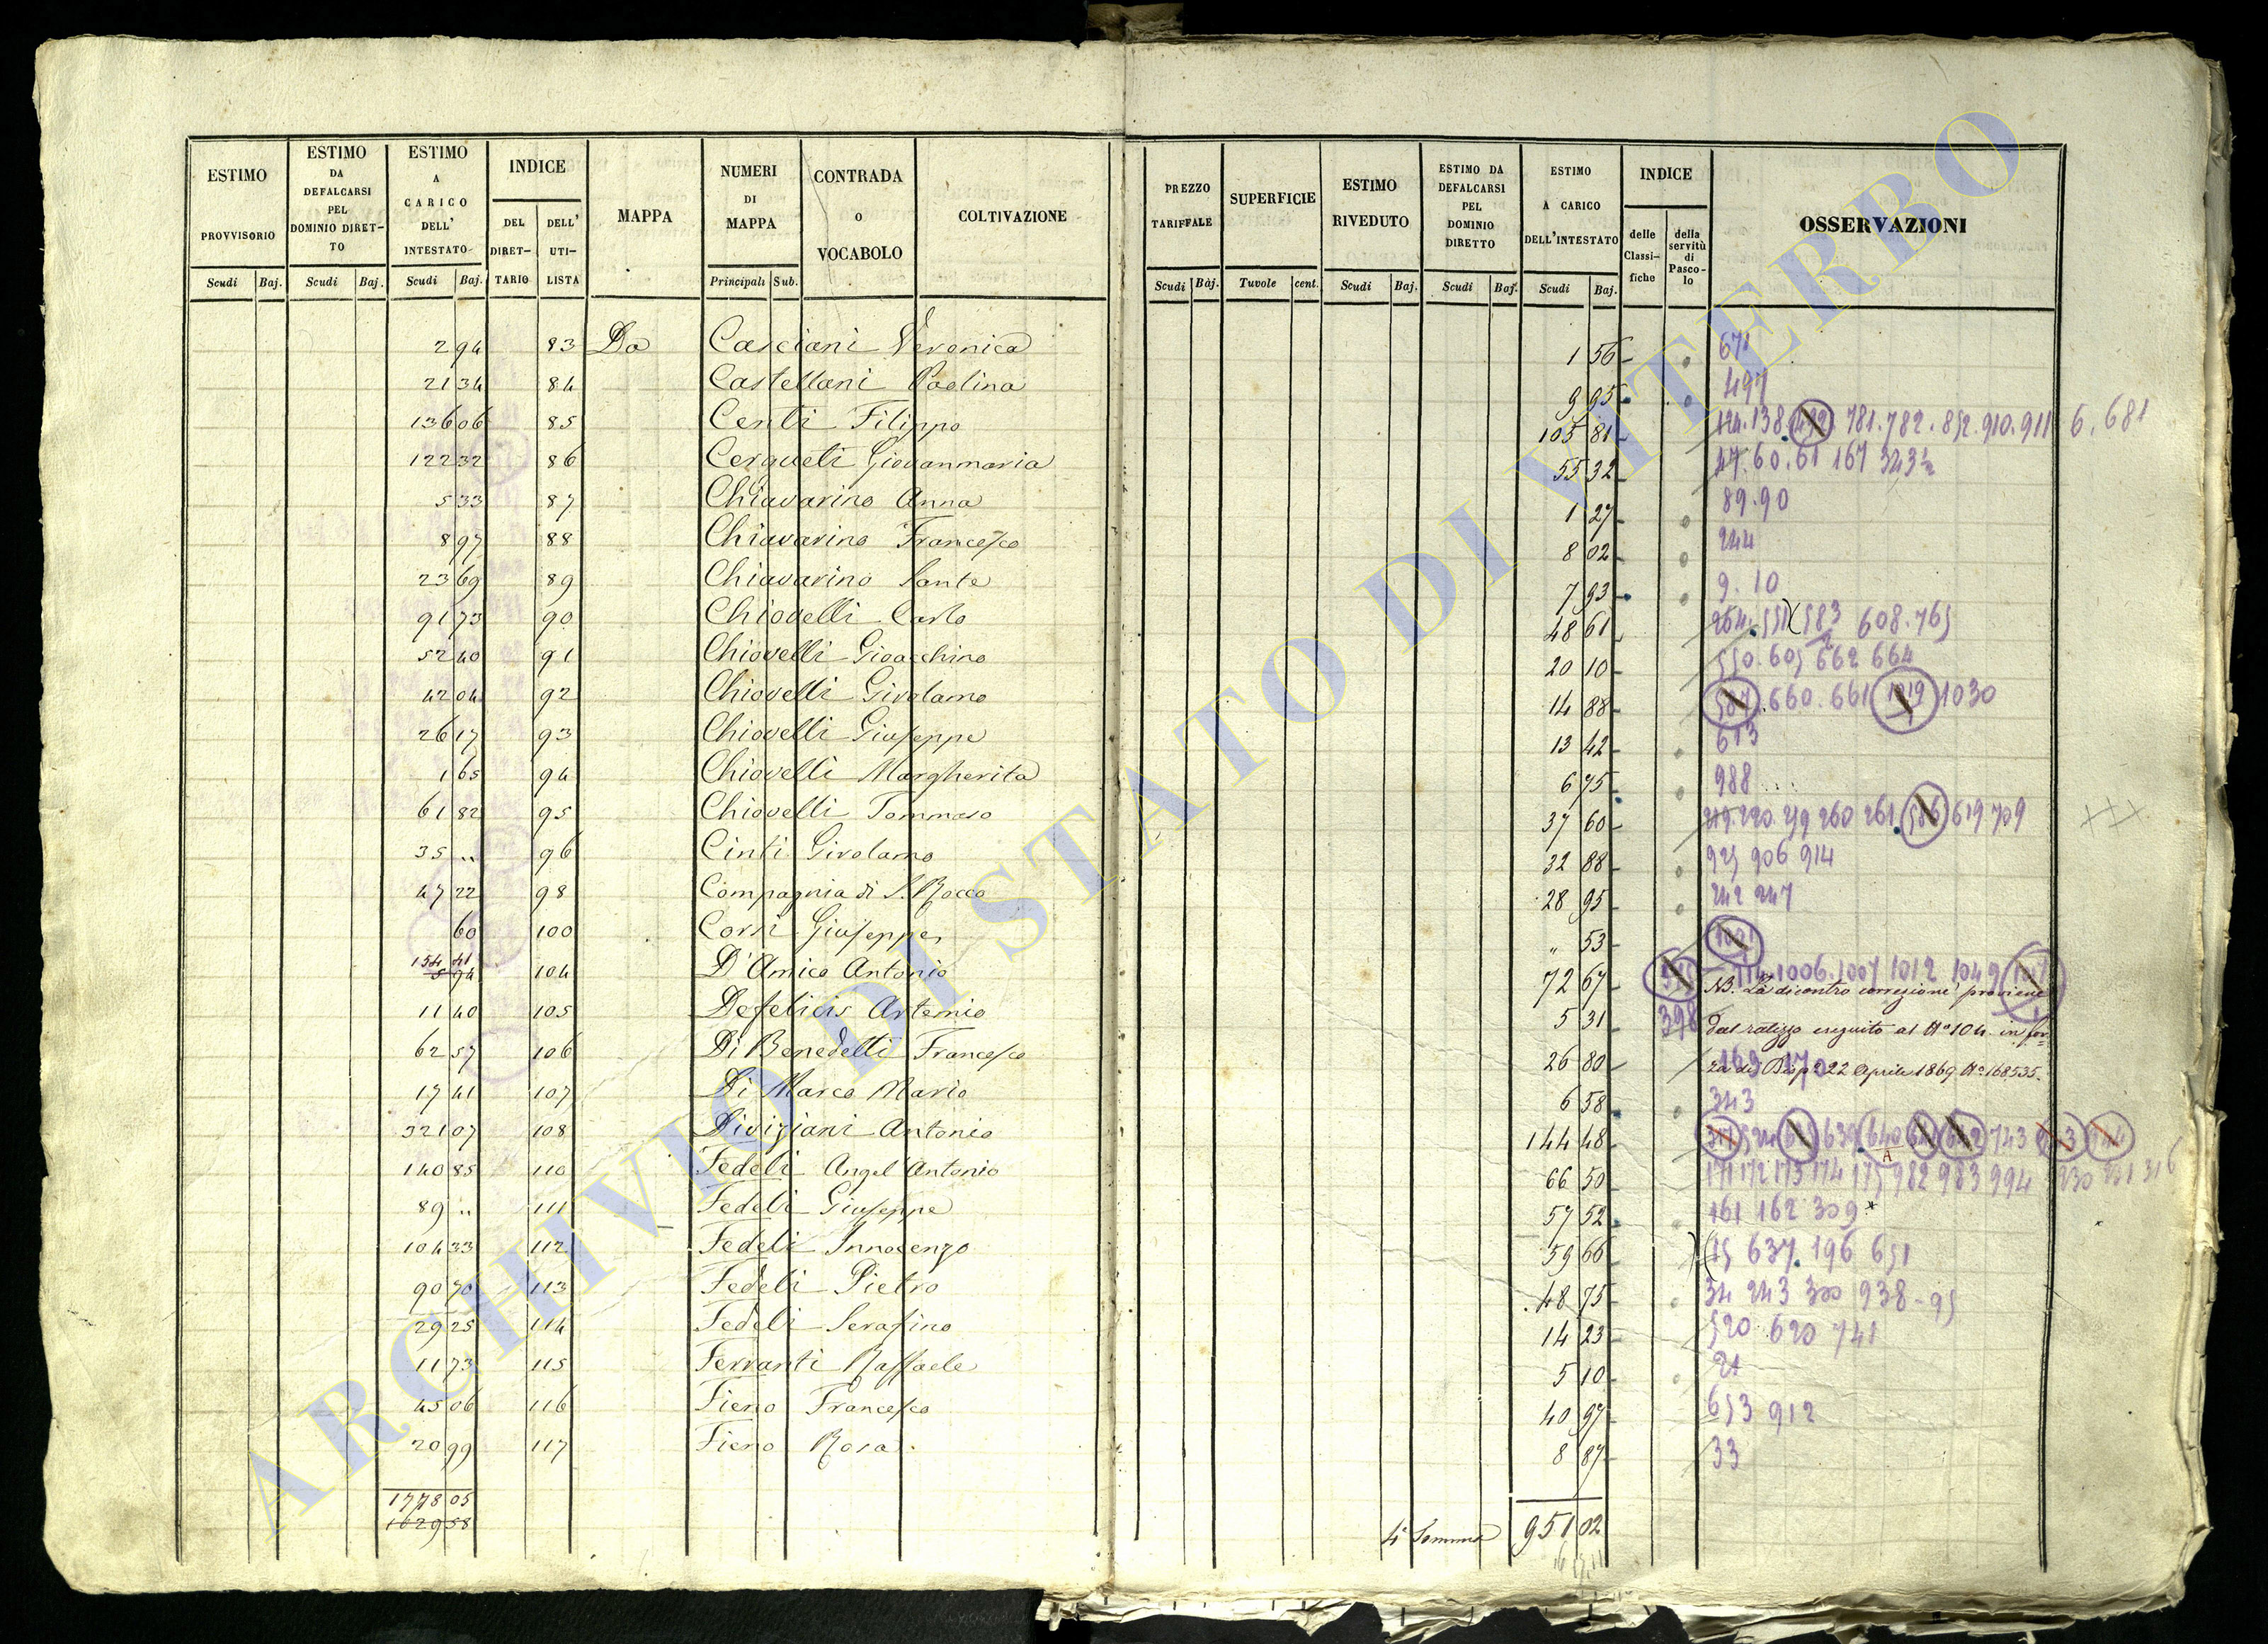 ESTIMO PROVVISORIO Scudi Baj. ESTIMO DA DEFALCARSI PEL DOMINIO DIRETTO Scudi Baj. ESTIMO A CARICO DELL' INTESTATO Scudi Baj. INDICE DEL DIRET-TARIO DELL' UTI-LISTA MAPPA NUMERI DI MAPPA Principali Sub. CONTRADA o VOCABOLO COLTIVAZIONE PREZZO TARIFFALE Scudi Baj. SUPERFICIE Tuvole cent. ESTIMO RIVEDUTO Scudi Baj. ESTIMO DA DEFALCARSI PEL DOMINIO DIRETTO Scudi Baj. ESTIMO A CARICO DELL'INTESTATO Scudi Baj. INDICE delle Classi-fiche della servitù di Pasco-lo OSSERVAZIONI
2 94 83 Da Casciani Veronica 1 56 671
21 34 84 Castellani Paolina 9 95 497
136 06 85 Centi Filippo 105 81 124. 138. 492 781. 782. 852. 910. 911 6. 681
122 32 86 Cerqueti Giovanmaria 55 32 47. 60. 61 167 343½
5 33 87 Chiavarino Anna 1 27 89. 90
8 97 88 Chiavarino Francesco 8 02 244
23 69 89 Chiavarino Sante 7 93 9. 10
91 73 90 Chiovelli Carlo 48 61 264. 551 583 608. 765
52 40 91 Chiovelli Gioacchino 20 10 550. 605 662 664
42 04 92 Chiovelli Girolamo 14 88 587. 660. 661 1019 1030
26 17 93 Chiovelli Giuseppe 13 42 613
1 65 94 Chiovelli Margherita 6 75 988
61 82 95 Chiovelli Tommaso 37 60 219. 220. 259 260 261. 586 619 709
35 .. 96 Cinti Girolamo 32 88 925 906 914
47 22 98 Compagnia di S. Rocco 28 95 242 247
60 100 Corsi Giuseppe „ 53 1021
154 41 104 D'Amico Antonio 72 67 1006. 1007 1012 1049
NB. La dicontro correzione proviene
11 40 105 Defelicis Artemio 5 31 398 dal ratizzo eseguito al N° 104 in for=
62 57 106 Di Benedetti Francesco 26 80 169 170
za di Disp° 22 Aprile 1869 N° 168535.
17 41 107 Di Marco Mario 6 58 343
321 07 108 Diviziani Antonio 144 48 639 640 743
140 85 110 Fedeli Angel'Antonio 66 50 171 172 173 174 175 982 983 994 930 931 316
89 .. 111 Fedeli Giuseppe 57 52 161 162 309
104 33 112 Fedeli Innocenzo 59 66 15 637. 196 651
90 70 113 Fedeli Pietro 48 75 34 243 300 938 - 95
29 25 114 Fedeli Serafino 14 23 520 620 741
11 73 115 Ferranti Raffaele 5 10 21
45 06 116 Fieno Francesco 40 97 653 912
20 99 117 Fieno Rosa 8 87 33
1778 05
1629 58
4ª Somma 951 02
ARCHIVIO DI STATO DI VITERBO